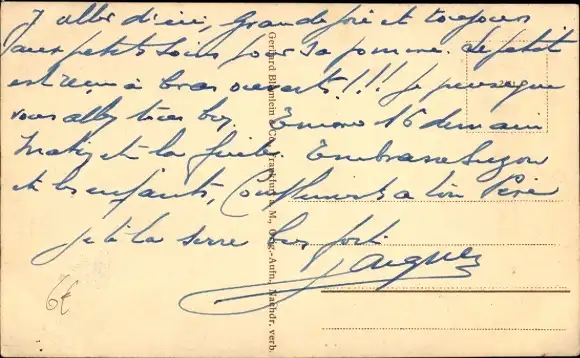 d'ici, Grande joie et toujours
aux petits soins pour sa pomme. Le petit
est reçu à bras ouverts!!! Je pense que
vous allez tous bien. Encore 16 demain
matin et la quille. Embrasse Suzon
et les enfants, Compliments à ton Père
Je te la serre bien fort
Jacques
6€
Gerhard Blümlein & Co., Frankfurt a. M., Orig.-Aufn., Nachdr. verb.